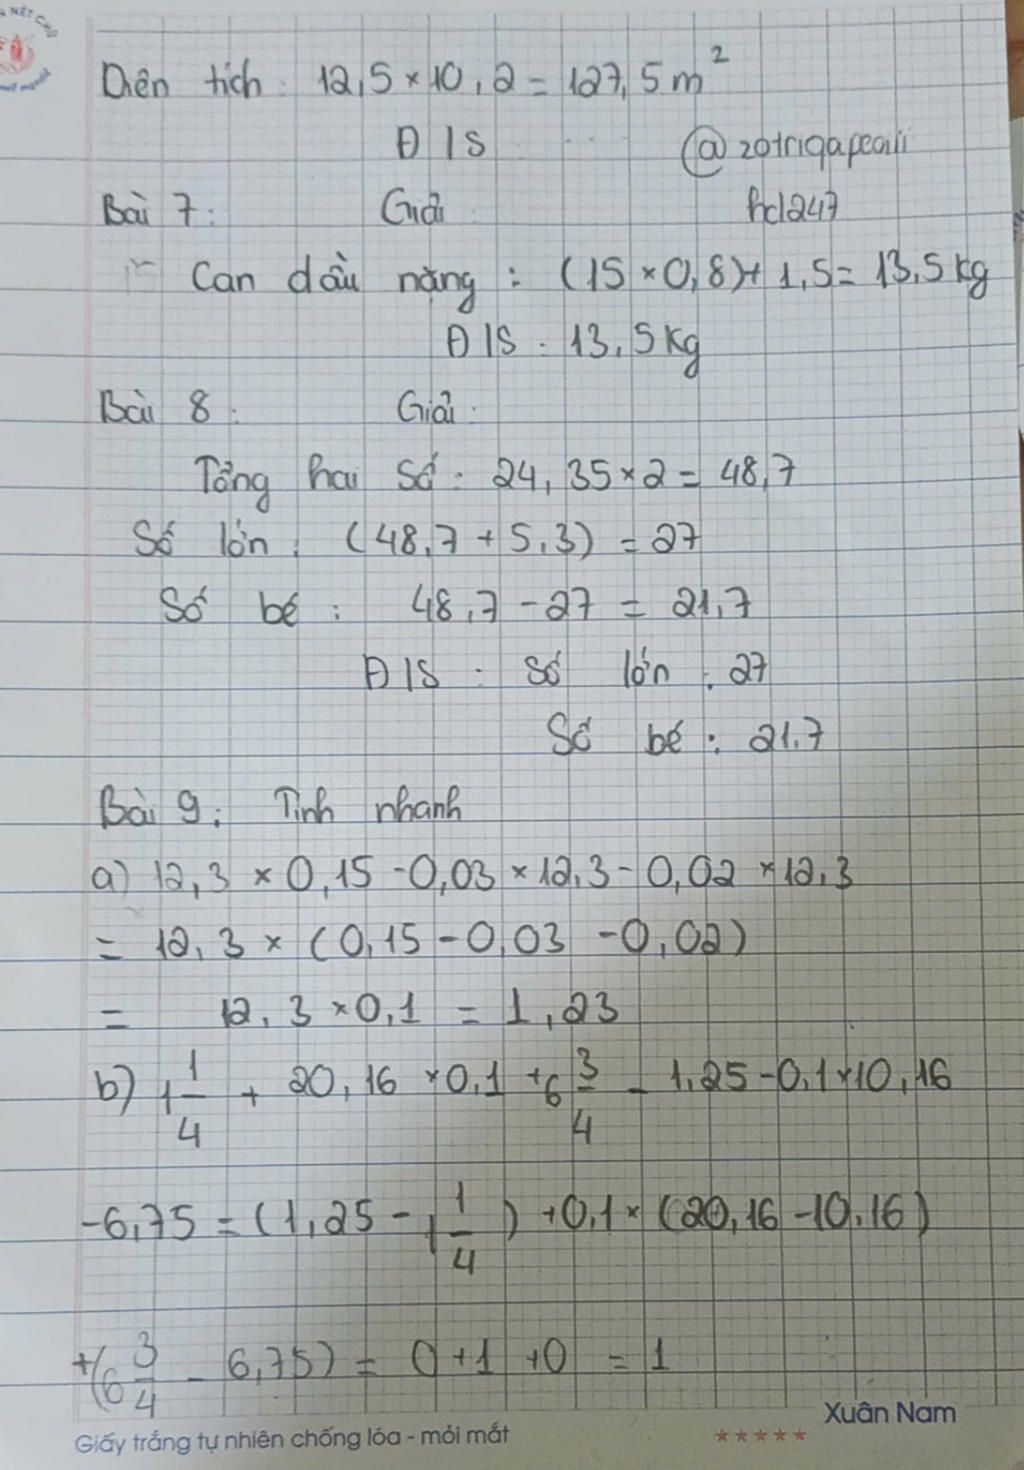 Diên tích: 12,5 × 10,2 = 127,5 m²
Đ/S
@zotriqapeaili
hd247
Bài 7: Giải
Can dầu nặng : (15 × 0,8) + 1,5 = 13,5 kg
Đ/S : 13,5 kg
Bài 8: Giải
Tổng hai số : 24,35 × 2 = 48,7
Số lớn : (48,7 + 5,3) = 27
Số bé : 48,7 - 27 = 21,7
Đ/S : số lớn : 27
Số bé : 21,7
Bài 9: Tính nhanh
a) 12,3 × 0,15 - 0,03 × 12,3 - 0,02 × 12,3
= 12,3 × (0,15 - 0,03 - 0,02)
= 12,3 × 0,1 = 1,23
b) 1 1/4 + 20,16 × 0,1 + 6 3/4 - 1,25 - 0,1 × 10,16
- 6,75 = (1,25 - 1 1/4) + 0,1 × (20,16 - 10,16)
+ (6 3/4 - 6,75) = 0 + 1 + 0 = 1
Xuân Nam
Giấy trắng tự nhiên chống lóa - mỏi mắt